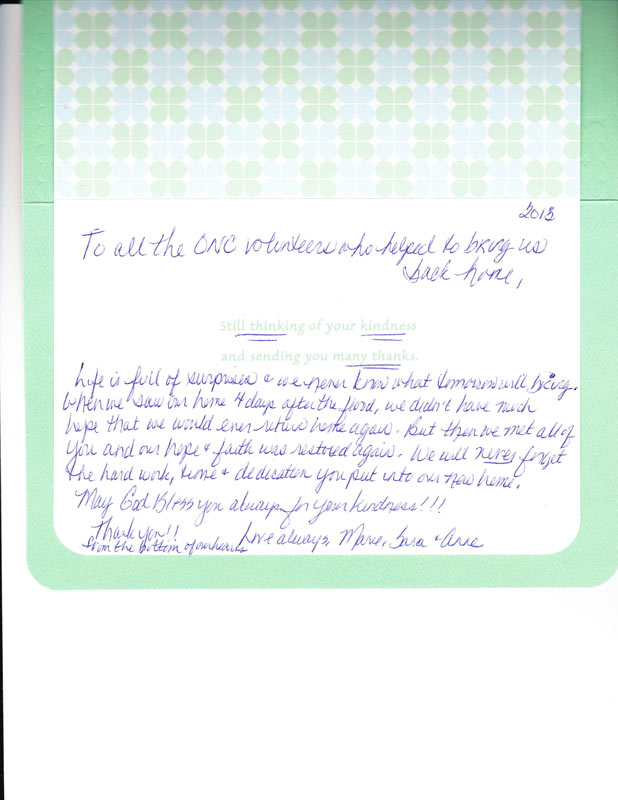 2013
To all the ONC volunteers who helped to bring us
back home,
Still thinking of your kindness
and sending you many thanks.
Life is full of surprises & we never know what tomorrow will bring.
When we saw our home 4 days after the flood, we didn't have much
hope that we would ever return home again. But then we met all of
you and our hope & faith was restored again. We will never forget
the hard work, time & dedication you put into our new home.
May God Bless you always for your kindness!!!
Thank you!!
from the bottom of our hearts
Love always, Marie, Sara & Anne